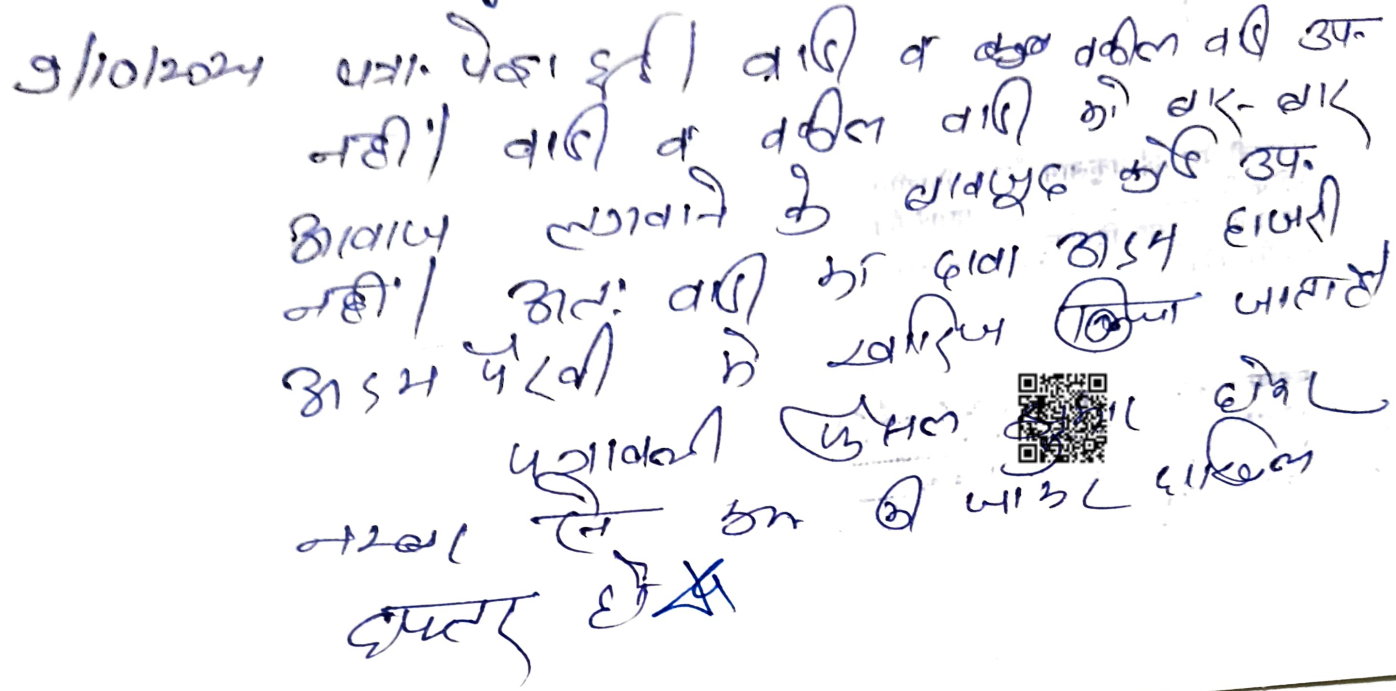 9/10/2024 पत्रा. पेश हुई। वादी व वकील वादी उप.
नहीं। वादी व वकील वादी को बार-बार
आवाज लगवाने के बावजूद कोई उप.
नहीं। अतः वादी का दावा अदम हाजरी
अदम पैरवी में खारिज किया जाता है
पत्रावली फैसल शुमार होकर
नम्बर से कम की जाकर दाखिल
दफ्तर हो